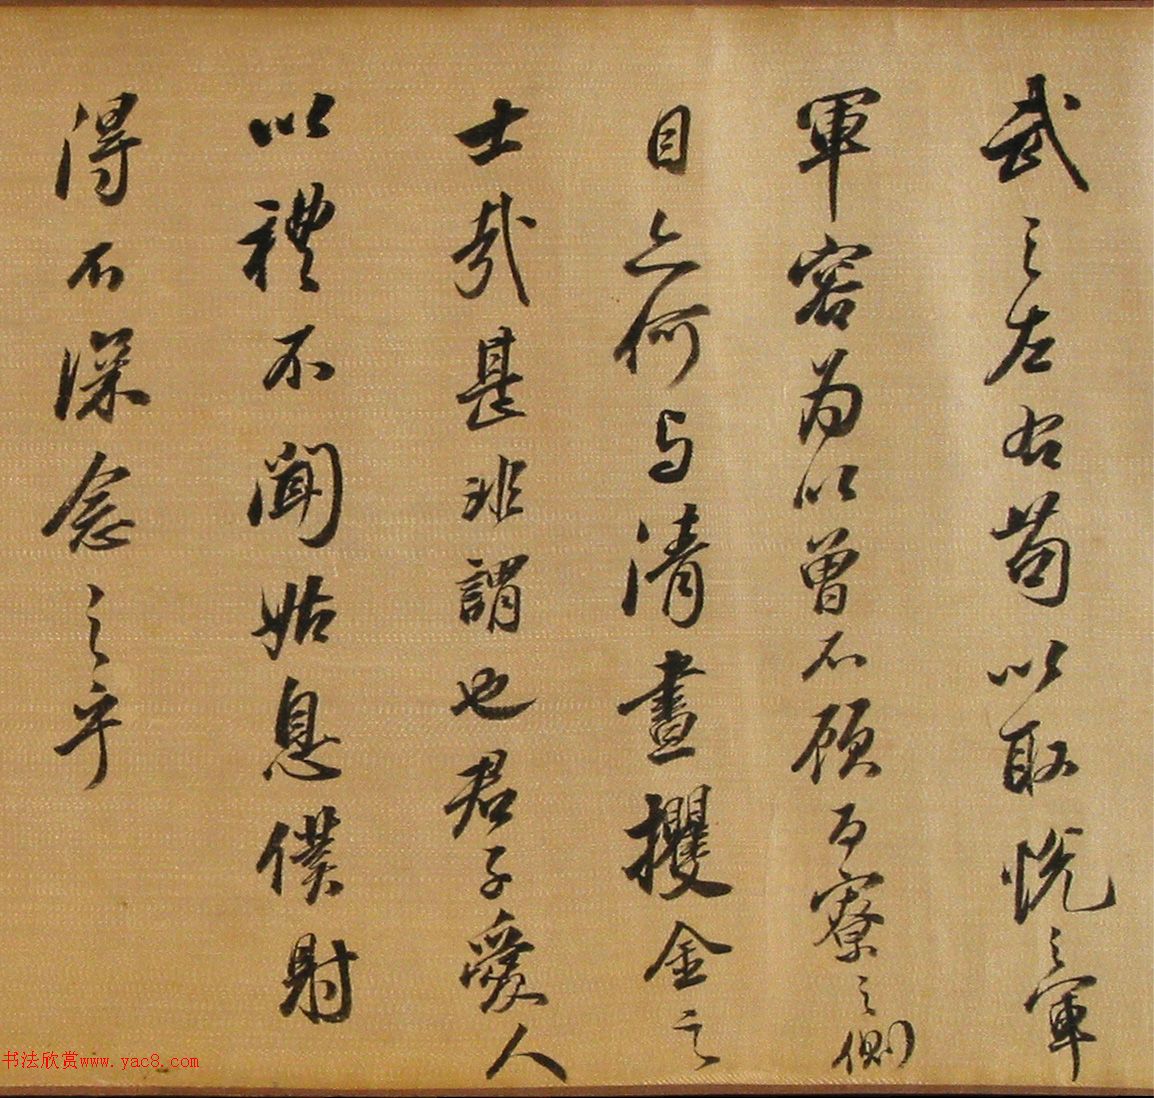 武之左右苟以取悦之軍
軍容為以曾不顧百寮之側
目亦何与清晝攫金之
士哉甚非謂也君子愛人
以禮不聞姑息僕射
得不深念之乎
书法欣赏www.yac8.com